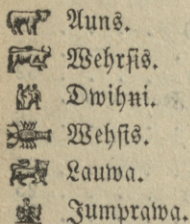 Auns.
Wehrſis.
Dwihņi.
Wehſis.
Lauwa.
Jumprawa.